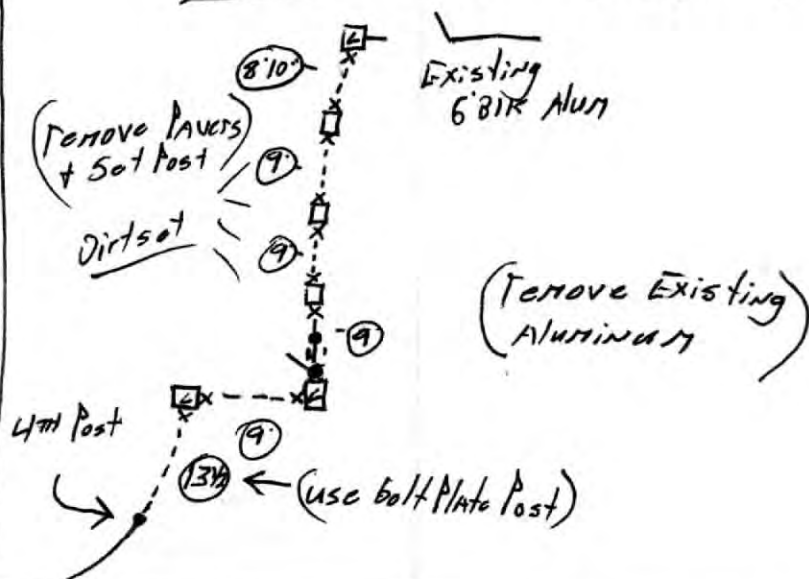 8'10"
Existing
6' Blk Alum
(remove Pavers
+ Set Post)
9'
Dirtset
9'
(remove Existing
Aluminum)
9
4TH Post
9'
13½
(use bolt Plate Post)